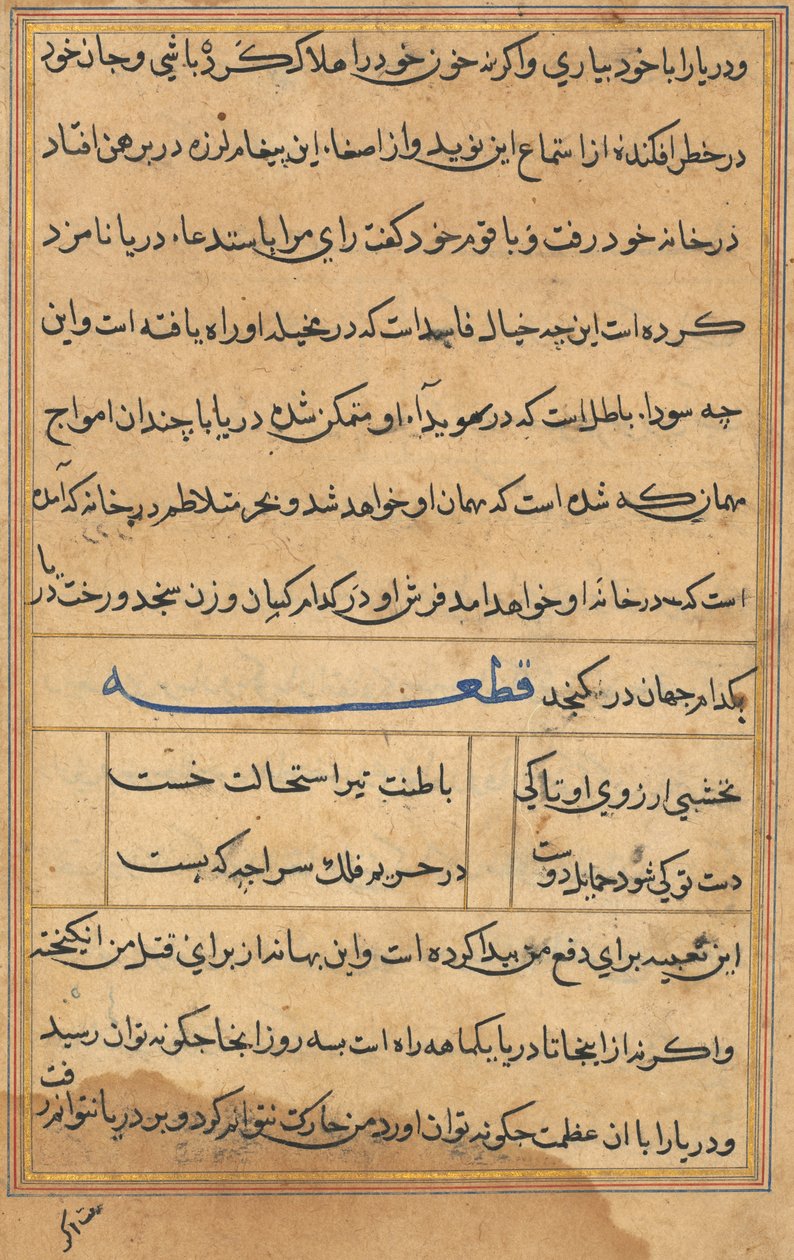 ودریارا با خود بیاري واکرنه خون خود را هلاک کرده باشي وجان خود
در خطر افکنده از استماع این نوید واز اصغاء این پیغام لرزه در برهمن افتاد
در خانه خود رفت و با قوم خود کفت راي مرا باستدعاء دریا نامزد
کرده است این چه خیال فاسد است که در مخیله او راه یافته است واین
چه سوداء باطل است که در سویدآء او متمکن شده دریا با چندان امواج
مهمان که شده است که مهمان او خواهد شد و بحر متلاطم در خانه که آمده
است که در خانه او خواهد امد فرش او در کدام کپان وزن سنجد ورخت دریا
بکدام جهان در کنجد قطعه
نخشبي ارزوي او تا کي باطنت تیر استحالت خست
دست تو کي شود حمایل دوست در حریم فلک سراجه که بست
این تعبیه براي دفع من پیدا کرده است واین بهانه از براي قتل من انکیخته
واکرنه از اینجا تا دریا یکماهه راه است بسه روز انجا جکونه توان رسید
ودریارا با ان عظمت جکونه توان اورد من حارکت نتوانم کرد و بر دریا نتوانم رفت